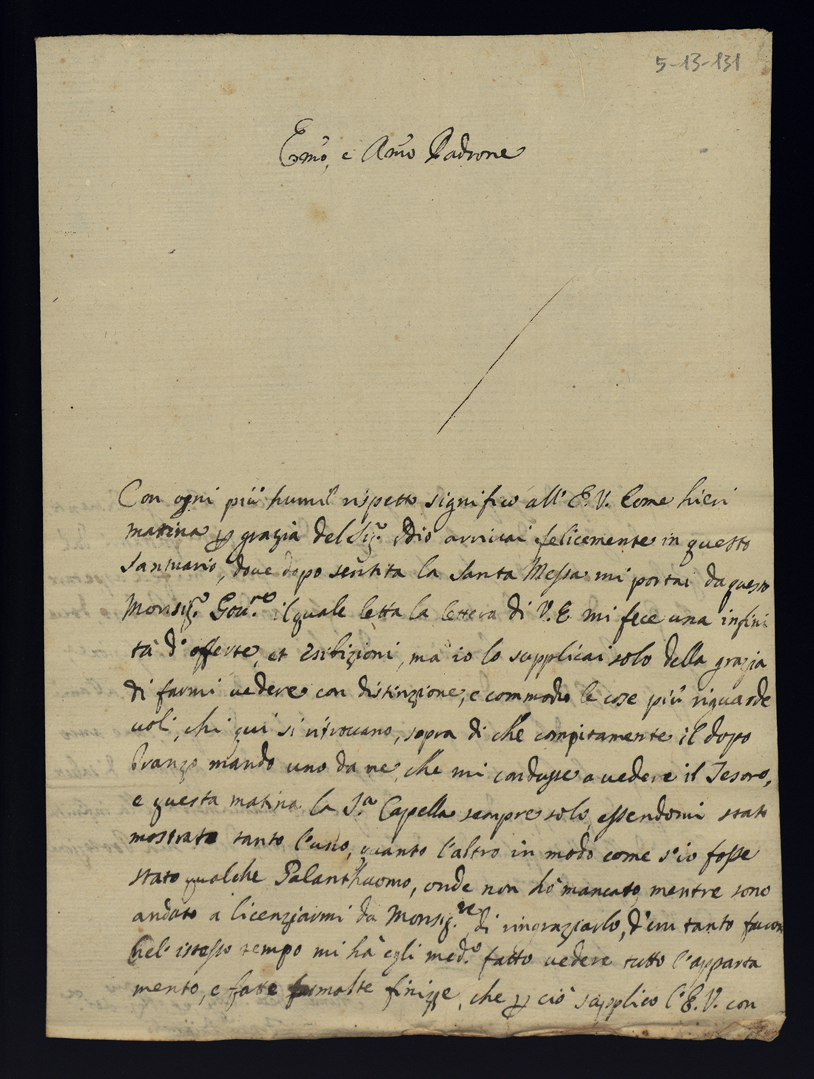 5-13-131
Ecc.mo, e Rev.mo Padrone
Con ogni più humil rispetto significo all' E.V. Come hieri
matina per grazia del Sig.r Iddio arrivai felicemente in questo
Santuario, dove dopo sentita la Santa Messa mi portai da questo
Monsig.r Gov.re il quale letta la lettera di V.E mi fece una infini
tà d'offerte, et esibizioni, ma io lo supplicai solo della grazia
di farmi vedere con distinzione, e commodo le cose più riguarde
voli, chi qui si ritrovano, sopra di che compitamente il dopo
Pranzo mandò uno da me, che mi condusse a vedere il Tesoro,
e questa matina la S.ta Capella sempre solo essendomi stato
mostrato tanto l'uno, quanto l'altro in modo come s'io fosse
stato qualche Galanthuomo, onde non hò mancato mentre sono
andato a licenziarmi da Monsig.re di ringraziarlo, d'un tanto favore
nel' istesso tempo mi hà egli med.o fatto vedere tutto l'apparta
mento, e fatte molte finizze, che per ciò supplico l'E.V. con